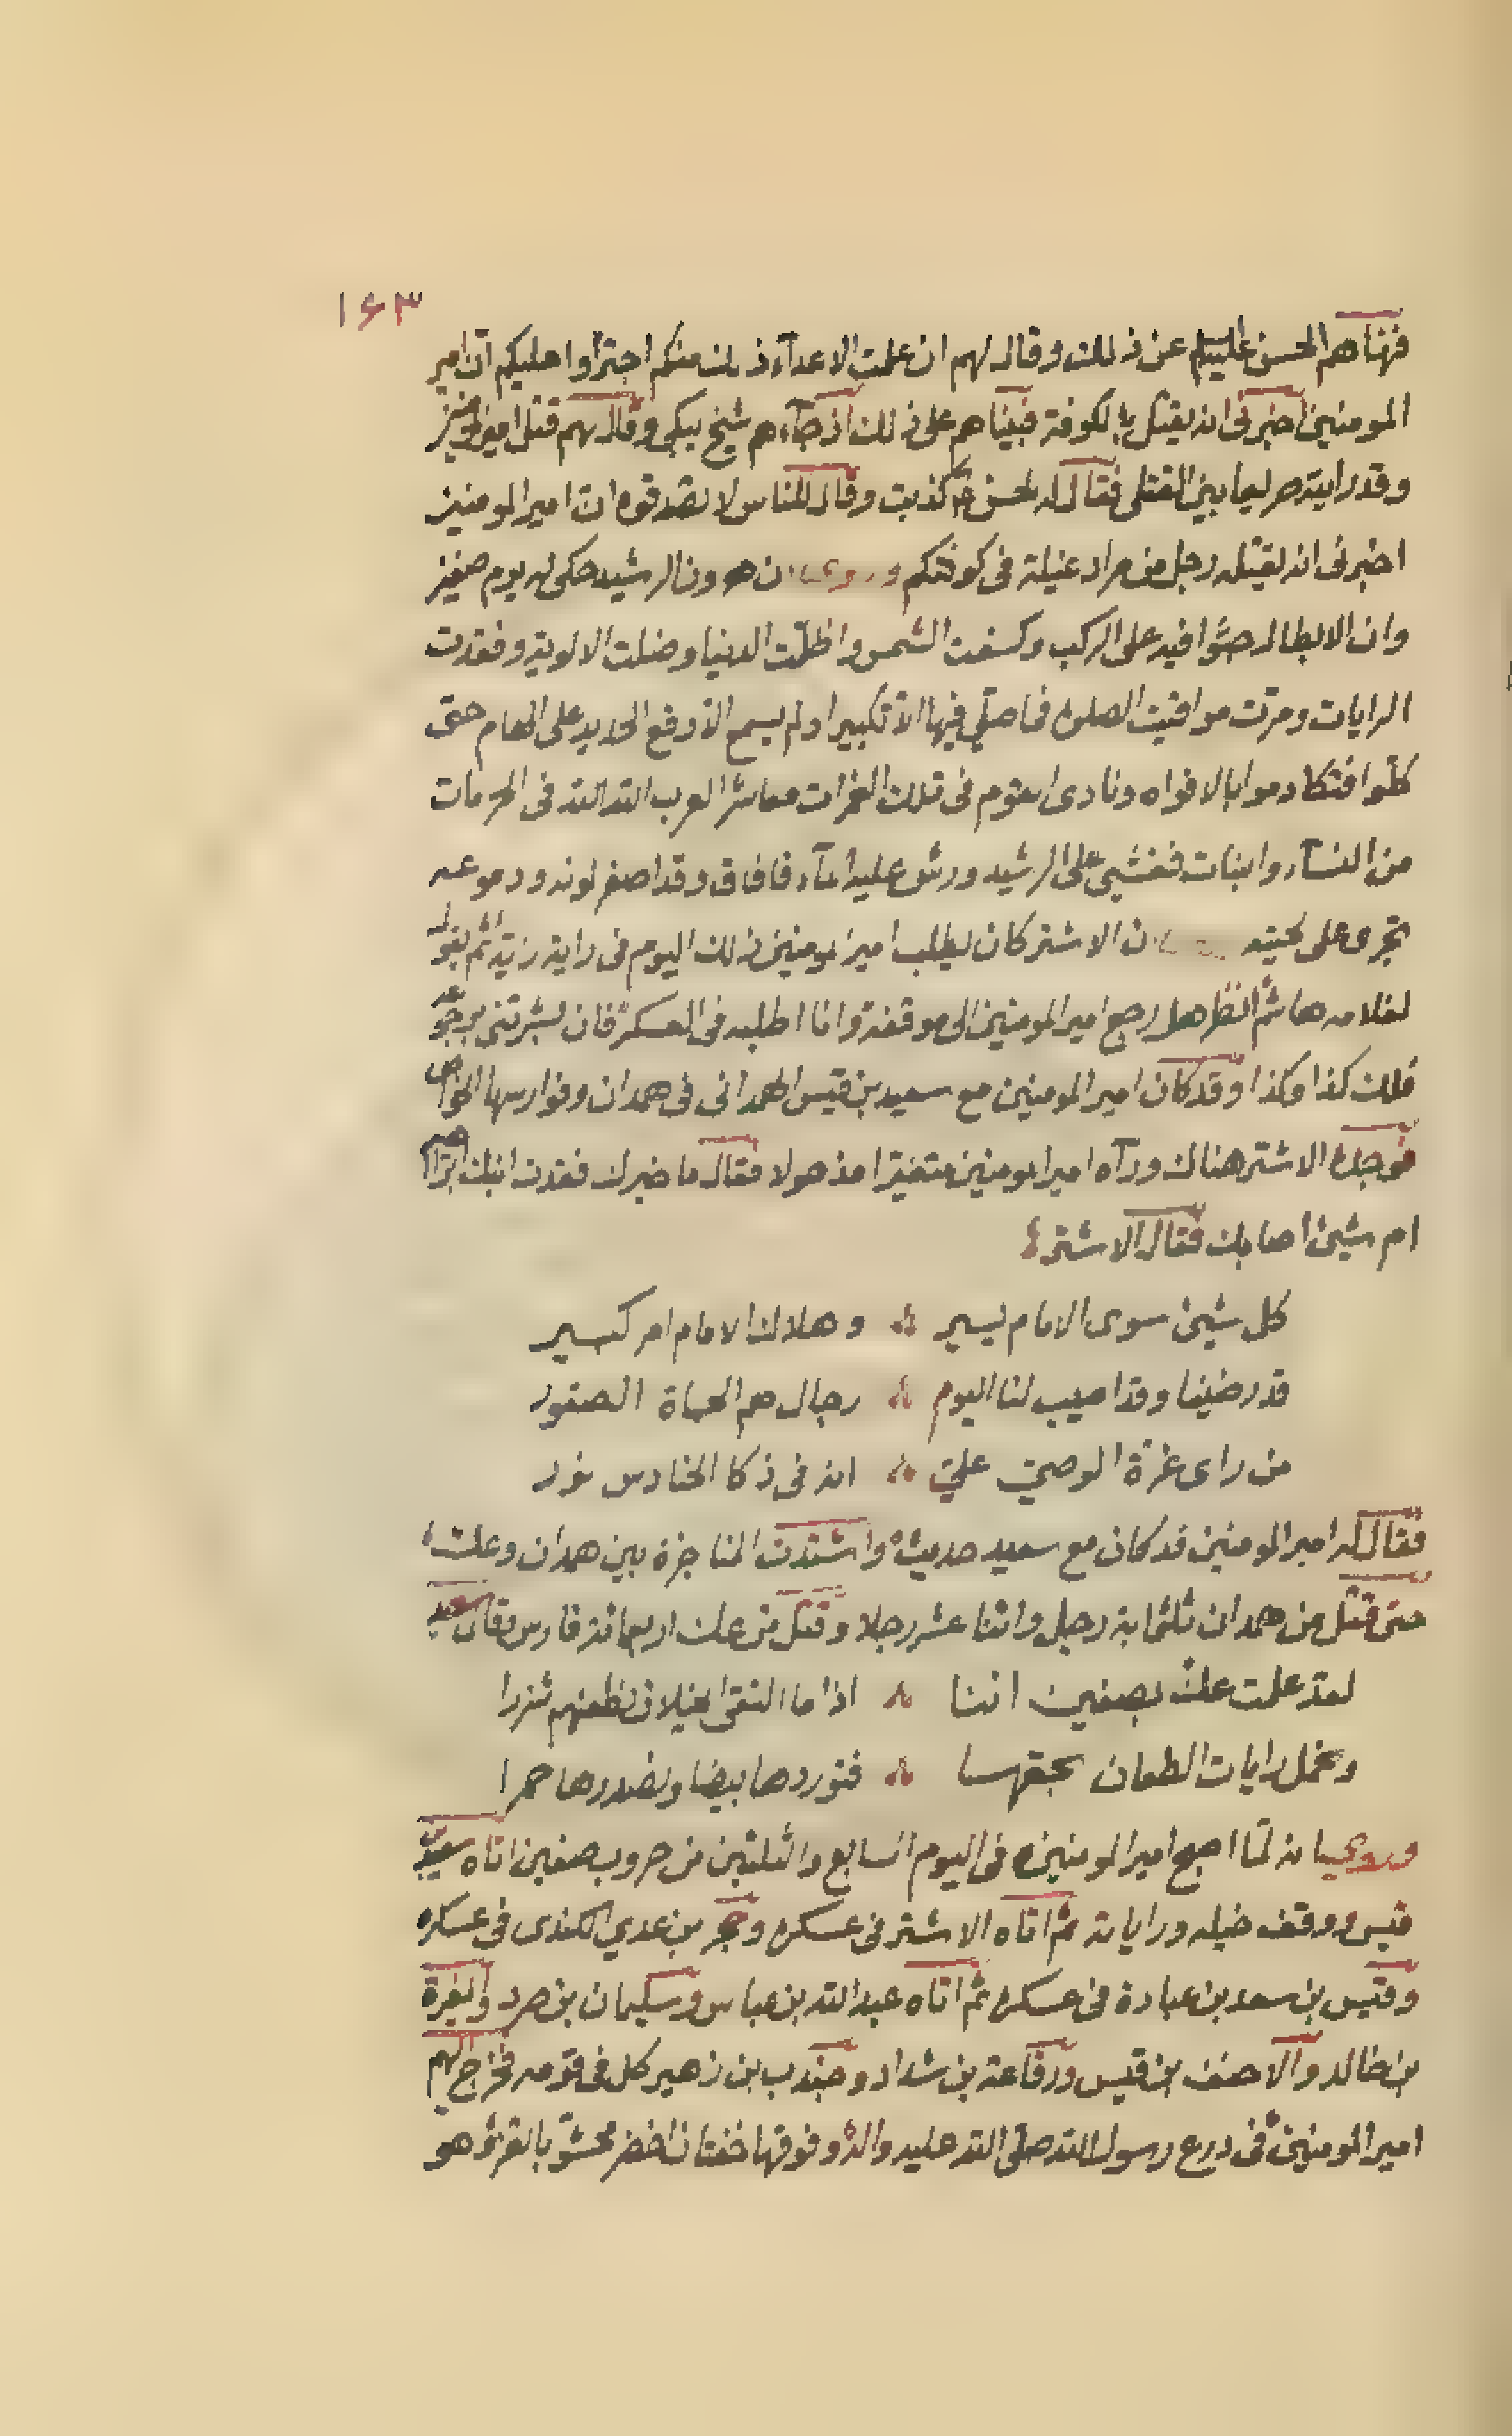 ١۶٣
فنهاهم الحسن عليه السلام عن ذلك وقال لهم ان علمت الاعدآء ذلك منكم اجترأوا عليكم انّ امير
المومنين اخبرنى انه يقتل بالكوفة فبيناهم على ذلك اذ جآءهم شيخ يبكى وقال لهم قتل امير المومنين
وقد رايته صريعا بين القتلى فقال له الحسن كذبت وقال للناس لا تصدقوه ان امير المومنين
اخبرنى انه يقتله رجل من مراد غيلة فى كوفتكم وروى ان هرون الرشيد حكى له يوم صفين
وان الابطال جثوا فيه على الركب وكسفت الشمس واظلمت الدنيا وضلت الالوية وفقدت
الرايات ومرّت مواقيت الصلوة فما صلّي فيها الاّ تكبيرا ولم يسمع الاّ وقع الحديد على الهام حتى
كلّوا فتكادموا بالافواه ونادى القوم فى تلك الغمرات معاشر العرب الله الله فى الحرمات
من النسآء والبنات فغشي على الرشيد ورشوّ عليه المآء فافاق وقد اصفر لونه ودموعه
تجرى على لحيته ان الاشتر كان يطلب امير المومنين ذلك اليوم فى راية راية ثم يقول
لغلامه هاشم انظر هل رجع امير المومنين الى موقفه وانا اطلبه فى العسكر فان بشرتنى برجوعه
فلك كذا وكذا وقد كان امير المومنين مع سعيد بن قيس الهمدانى فى همدان وفوارسها الخواص
فوجده الاشتر هناك ورآه امير المومنين متغيرا مذهولا فقال ما خبرك فقدت ابنك ابراهيم
ام شيئ اصابك فقال الاشتر
كل شيئ سوى الامام يسير وهلاك الامام امر كبير
قد رضينا وقد اصيب لنا اليوم رجال هم الحماة الصقور
من راى غرة الوصيّ عليّ انه فى دكا الحنادس نور
فقال له امير المومنين قد كان مع سعيد حديث واشتدت المناجزة بين همدان وعك
حتى قتل من همدان ثلثماية رجل واثنا عشر رجلا وقتل من عك اربعمائة فارس فقال سعيد
لقد علمت عك بصفين اننا اذا ما التقى الخيلان نطعنهم شزرا
ونحمل رايات الطعان بحقها فنوردها بيضا ونصدرها حمرا
وروى انه لمّا اصبح امير المومنين فى اليوم السابع والثلثين من حروب صفين اتاه سعيد بن
قيس ووقف خيله وراياته ثم اتاه الاشتر فى عسكره وحجر بن عدي الكندى فى عسكره
وقيس بن سعد بن عبادة فى عسكره ثم اتاه عبد الله بن عباس وسليمان بن صرد والمغيرة
بن خالد والاحنف بن قيس ورفاعة بن شداد وجندب بن زهير كل فى قومه فخرج اليهم
امير المومنين فى درع رسول الله صلى الله عليه واله وفوقها خفتان اخضر محشوّ بالقز وهو